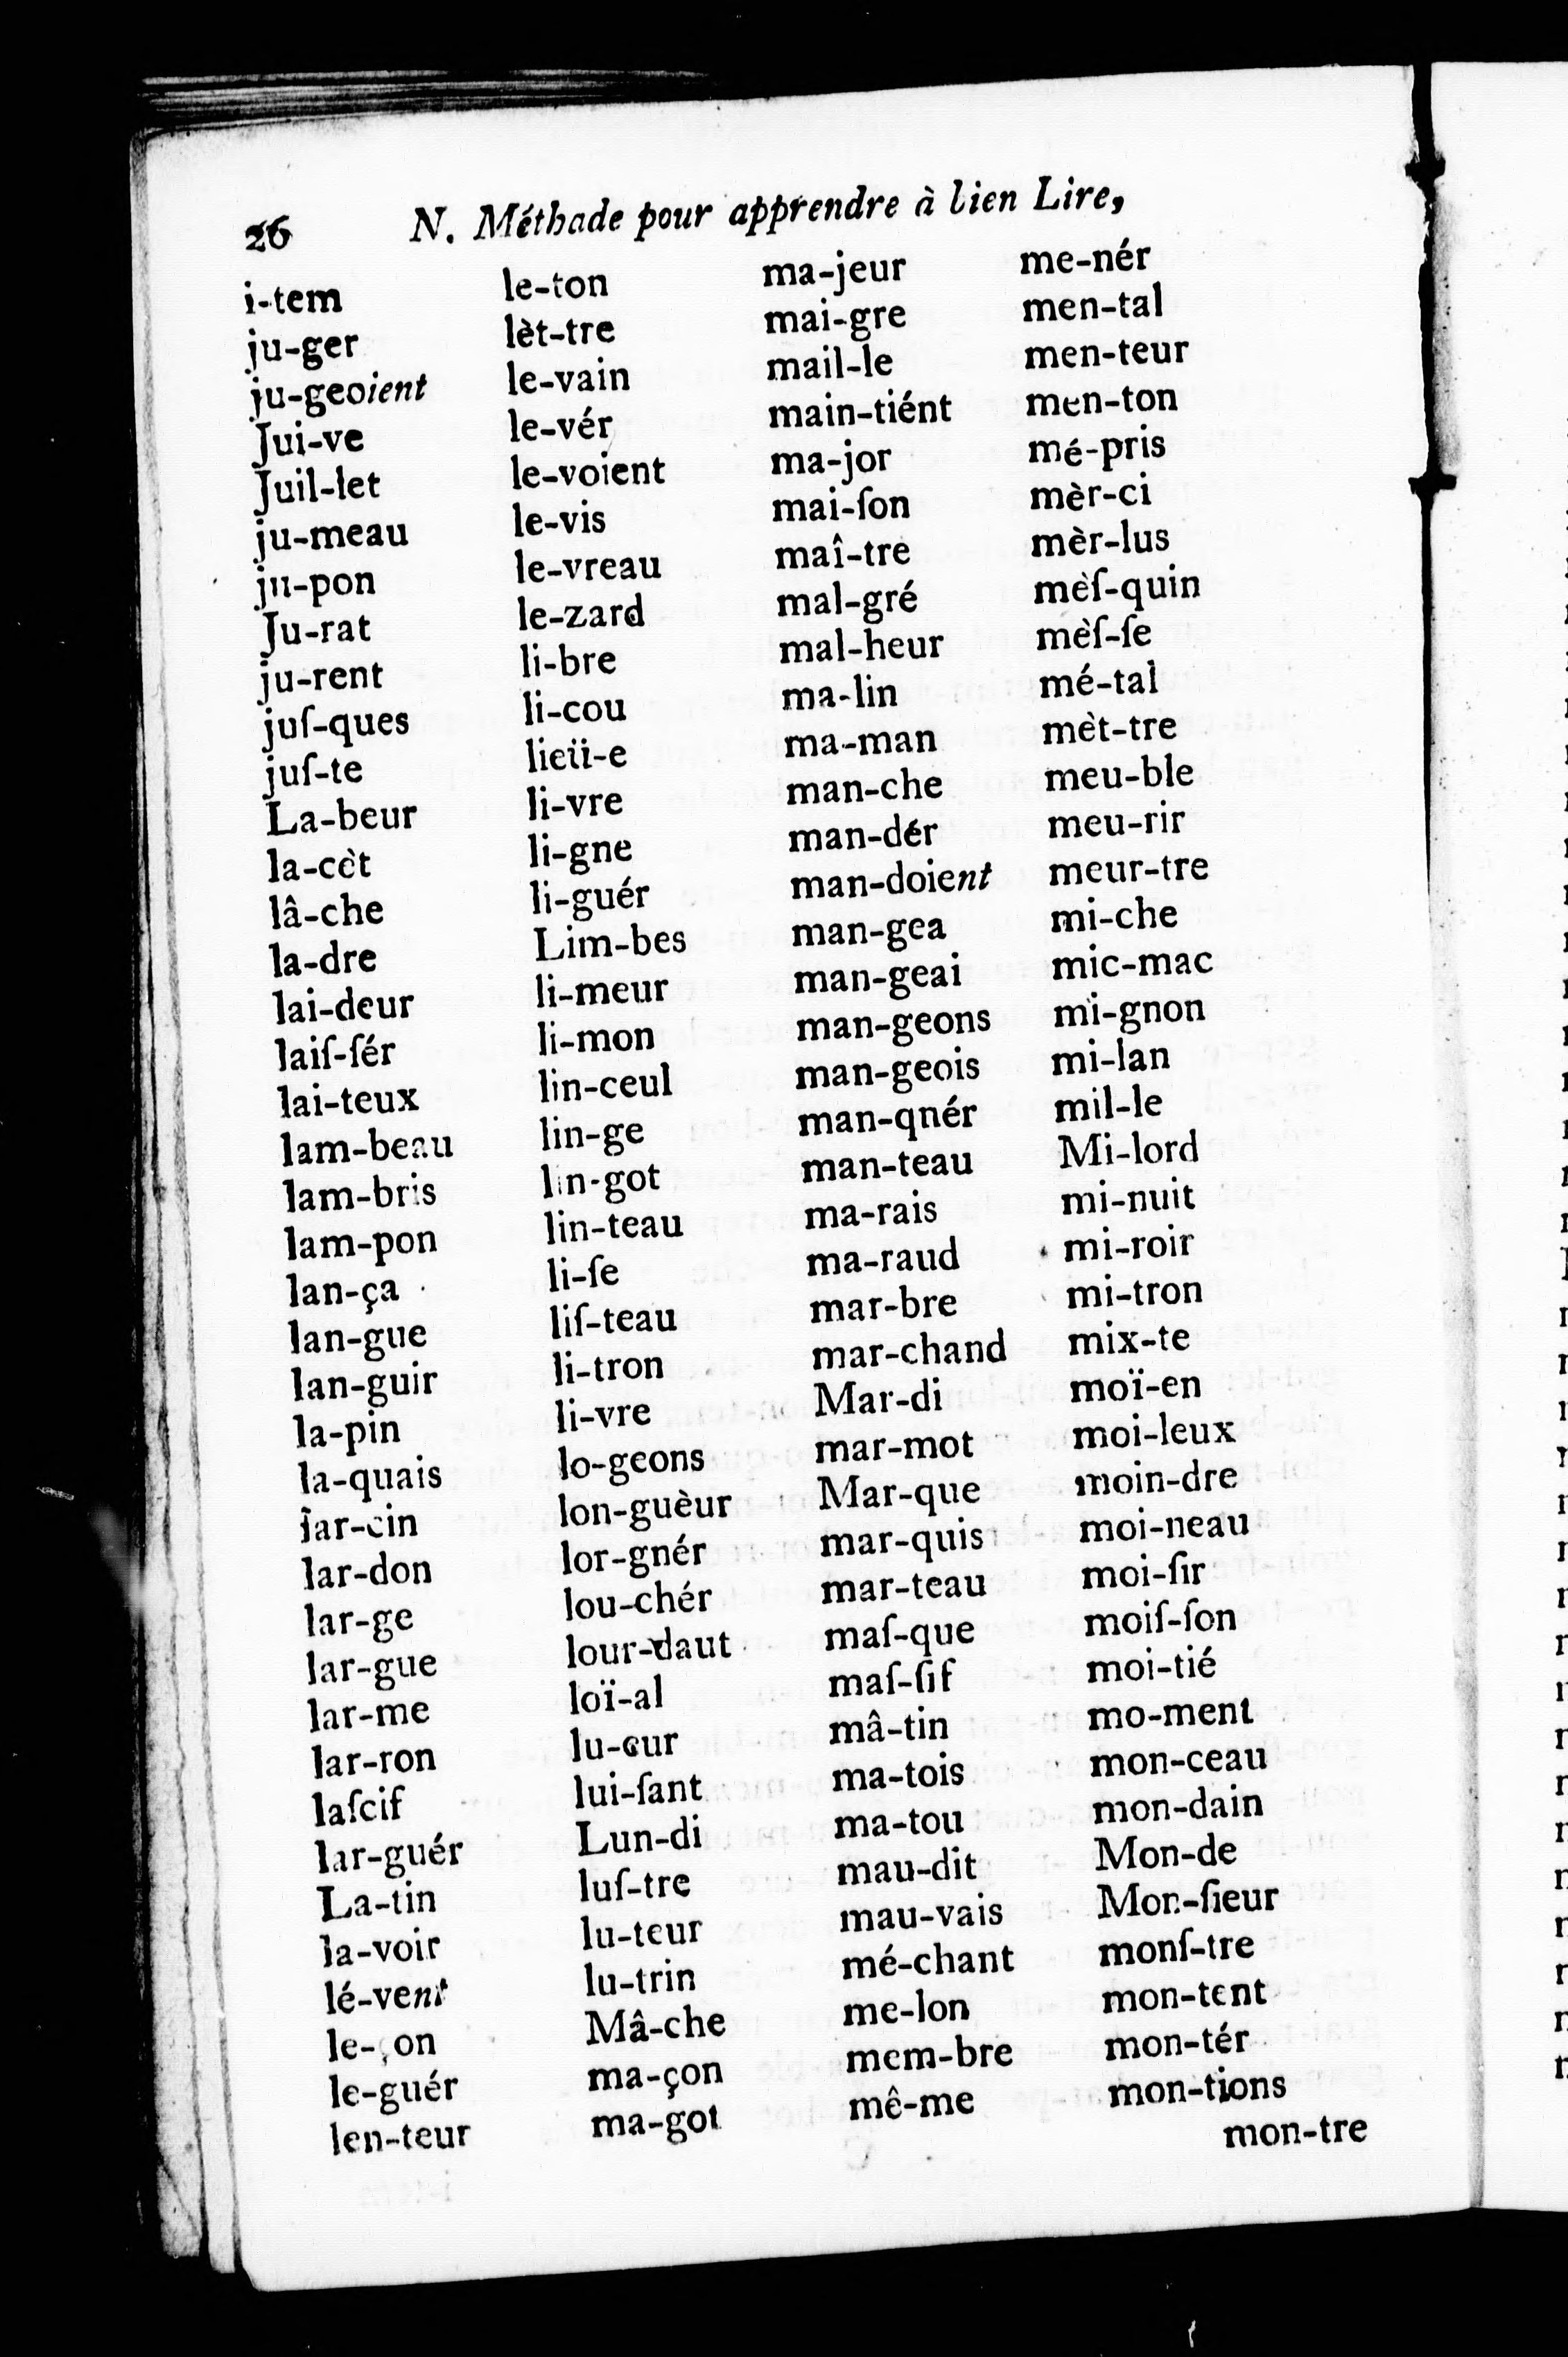 26 N. Méthade pour apprendre à bien Lire,
i-tem le-ton ma-jeur me-nér
ju-ger lèt-tre mai-gre men-tal
ju-geoient le-vain mail-le men-teur
Jui-ve le-vér main-tiént men-ton
Juil-let le-voient ma-jor mé-pris
ju-meau le-vis mai-ſon mèr-ci
ju-pon le-vreau maî-tre mèr-lus
Ju-rat le-zard mal-gré mèſ-quin
ju-rent li-bre mal-heur mèſ-ſe
juſ-ques li-cou ma-lin mé-tal
juſ-te lieü-e ma-man mèt-tre
La-beur li-vre man-che meu-ble
la-cèt li-gne man-dér meu-rir
lâ-che li-guér man-doient meur-tre
la-dre Lim-bes man-gea mi-che
lai-deur li-meur man-geai mic-mac
laiſ-ſér li-mon man-geons mi-gnon
lai-teux lin-ceul man-geois mi-lan
lam-beau lin-ge man-qnér mil-le
lam-bris lin-got man-teau Mi-lord
lam-pon lin-teau ma-rais mi-nuit
lan-ça li-ſe ma-raud mi-roir
lan-gue liſ-teau mar-bre mi-tron
lan-guir li-tron mar-chand mix-te
la-pin li-vre Mar-di moï-en
la-quais lo-geons mar-mot moi-leux
lar-cin lon-guèur Mar-que moin-dre
lar-don lor-gnér mar-quis moi-neau
lar-ge lou-chér mar-teau moi-ſir
lar-gue lour-daut maſ-que moiſ-ſon
lar-me loï-al maſ-ſif moi-tié
lar-ron lu-eur mâ-tin mo-ment
laſcif lui-ſant ma-tois mon-ceau
lar-guér Lun-di ma-tou mon-dain
La-tin luſ-tre mau-dit Mon-de
la-voir lu-teur mau-vais Mon-ſieur
lé-vent lu-trin mé-chant monſ-tre
le-çon Mâ-che me-lon mon-tent
le-guér ma-çon mem-bre mon-tér
len-teur ma-got mê-me mon-tions
mon-tre